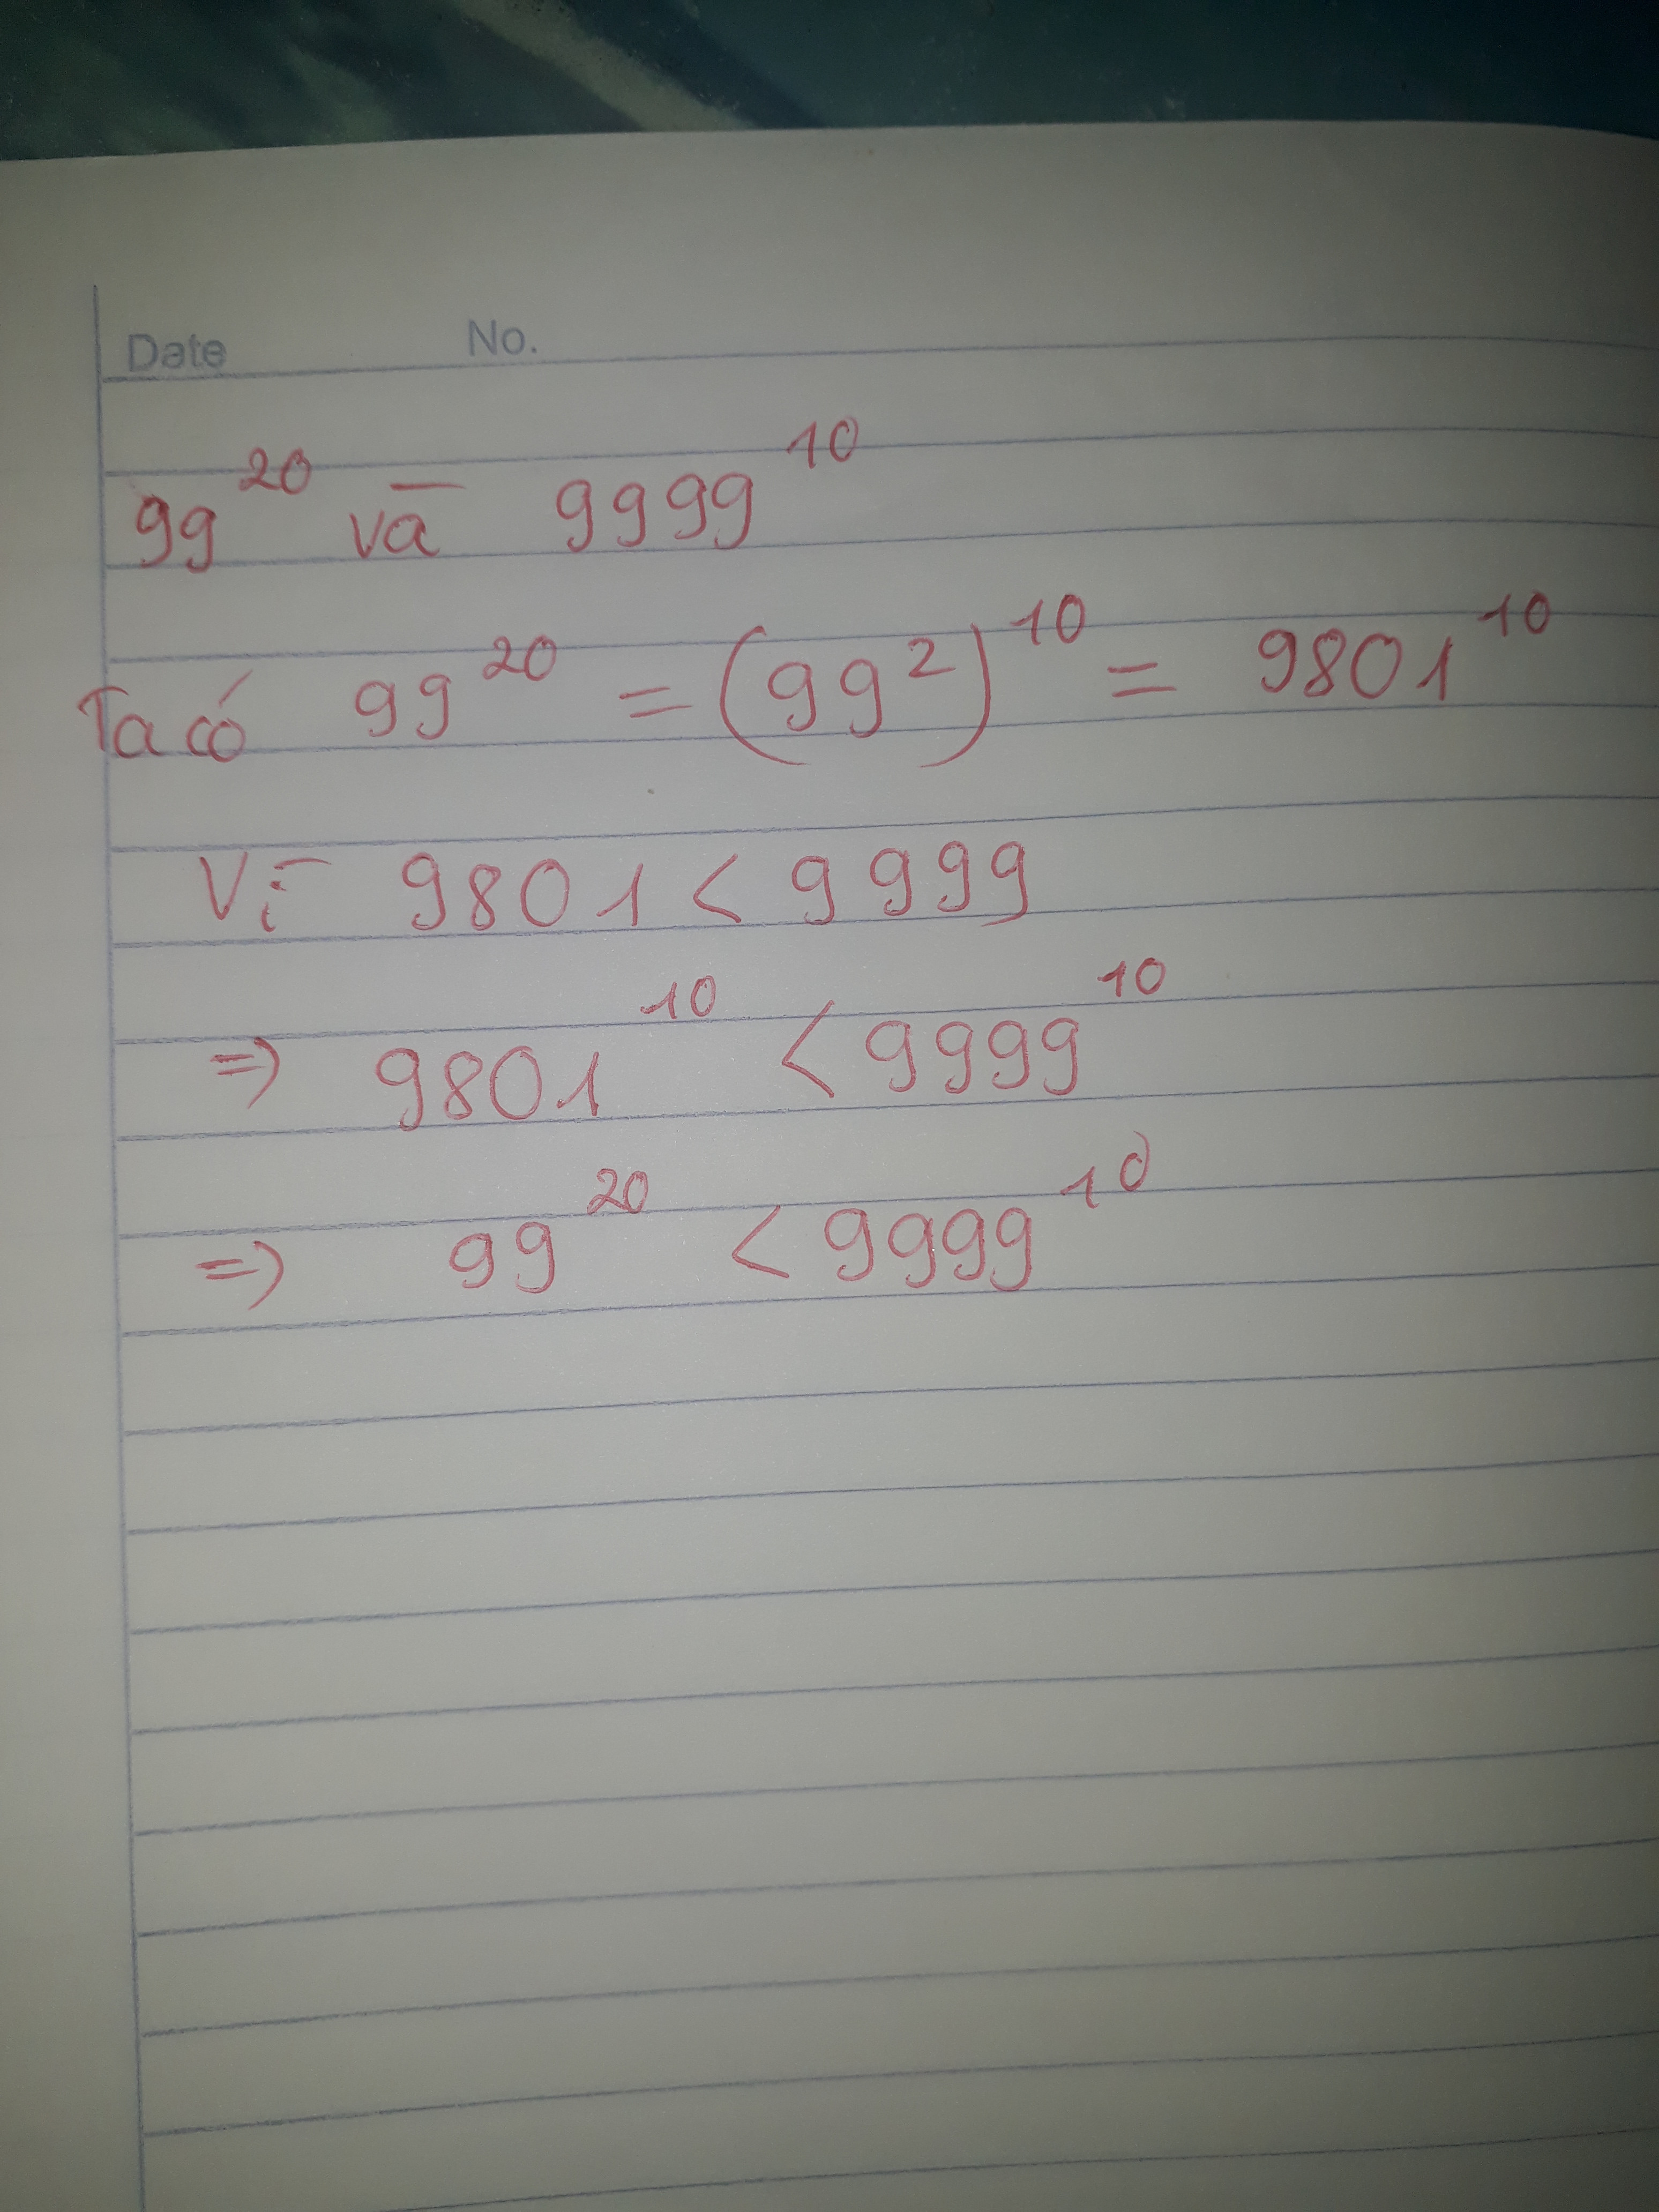 Date No.
99²⁰ và 9999¹⁰
Ta có 99²⁰ = (99²)¹⁰ = 9801¹⁰
Vì 9801 < 9999
=> 9801¹⁰ < 9999¹⁰
=> 99²⁰ < 9999¹⁰